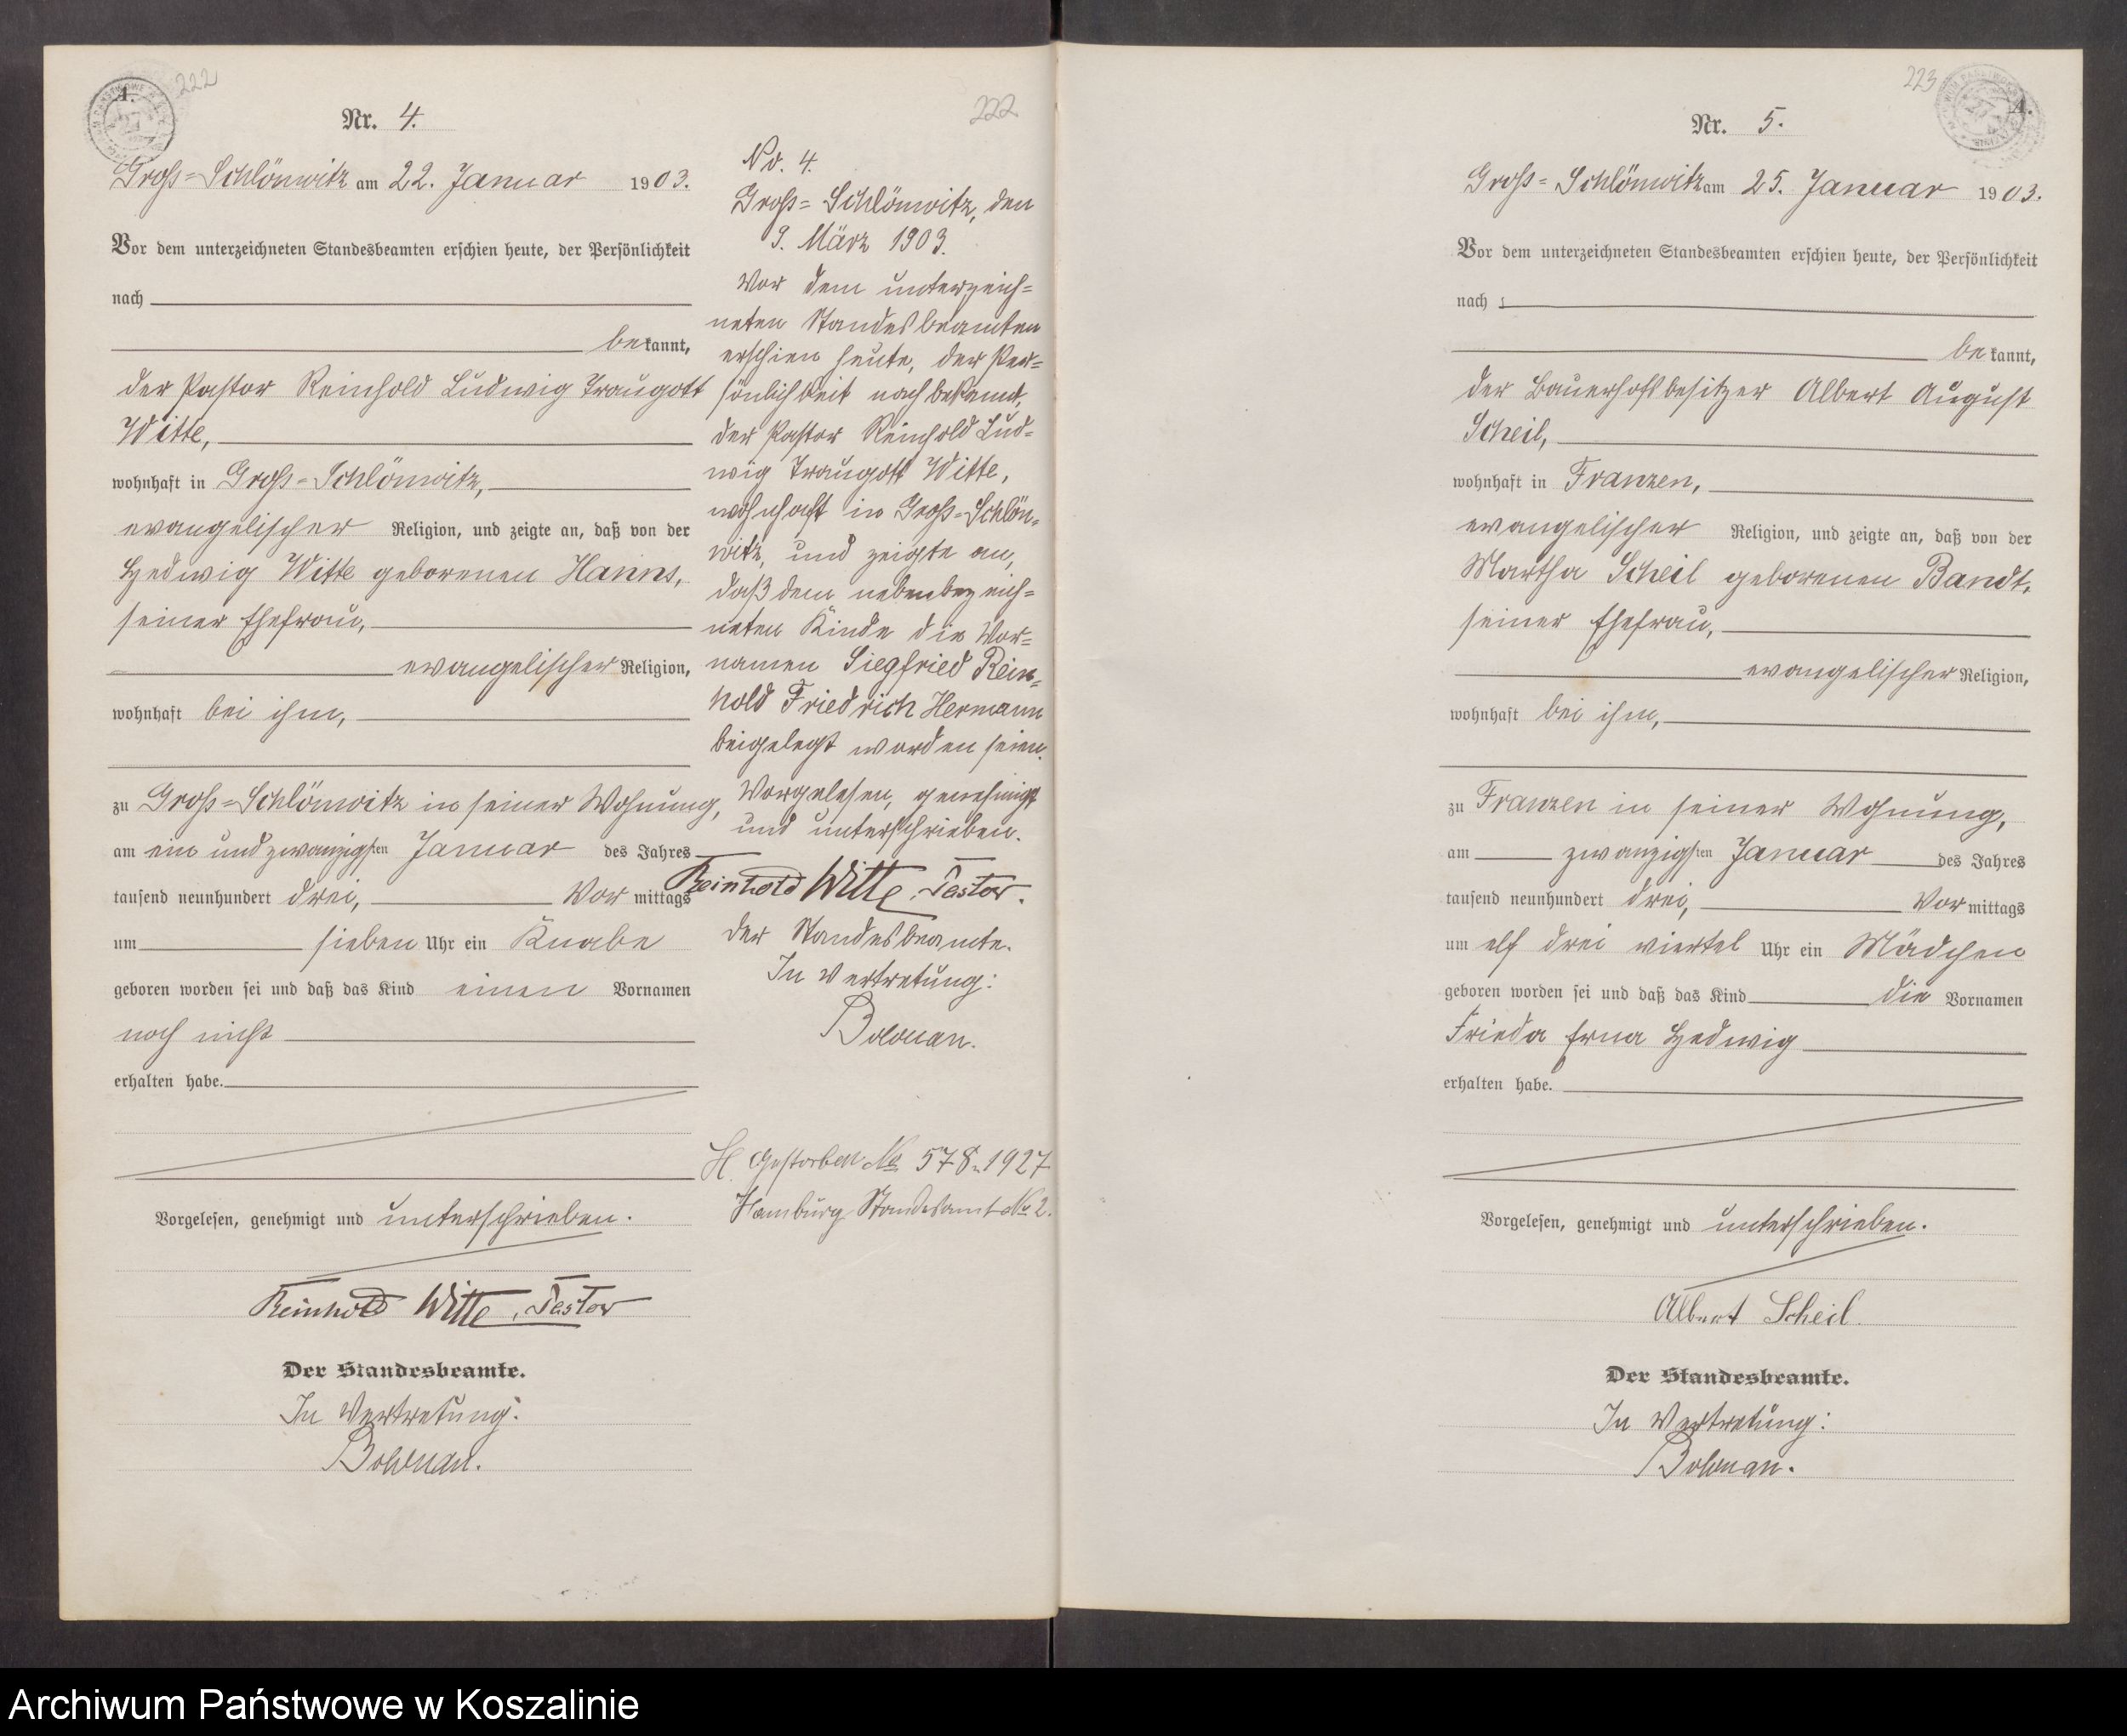 A.
222
Nr. 4.
Groß=Schlönwitz am 22. Januar 1903.
Vor dem unterzeichneten Standesbeamten erschien heute, der Persönlichkeit
nach
bekannt,
der Pastor Reinhold Ludwig Traugott
Witte,
wohnhaft in Groß=Schlönwitz,
evangelischer Religion, und zeigte an, daß von der
Hedwig Witte geborenen Hanns,
seiner Ehefrau,
evangelischer Religion,
wohnhaft bei ihm,
zu Groß=Schlönwitz in seiner Wohnung,
am ein und zwanzigsten Januar des Jahres
tausend neunhundert drei, Vormittags
um sieben Uhr ein Knabe
geboren worden sei und daß das Kind einen Vornamen
noch nicht
erhalten habe.
Vorgelesen, genehmigt und unterschrieben.
Reinhold Witte, Pastor
Der Standesbeamte.
In Vertretung:
222
No. 4.
Groß=Schlönwitz, den
9. März 1903.
Vor dem unterzeich=
neten Standesbeamten
erschien heute, der Per=
sönlichkeit nach bekannt,
der Pastor Reinhold Lud=
wig Traugott Witte,
wohnhaft in Groß=Schlön=
witz, und zeigte an,
daß dem nebenbezeich=
neten Kinde die Vor=
namen Siegfried Rein=
hold Friedrich Hermann
beigelegt worden seien.
Vorgelesen, genehmigt
und unterschrieben.
Reinhold Witte, Pastor.
Der Standesbeamte.
In Vertretung:
H. Gestorben No 578 1927
Hamburg Standesamt No 2.
223
A.
Nr. 5.
Groß=Schlönwitz am 25. Januar 1903.
Vor dem unterzeichneten Standesbeamten erschien heute, der Persönlichkeit
nach
bekannt,
der Bauerhofsbesitzer Albert August
Scheil,
wohnhaft in Franzen,
evangelischer Religion, und zeigte an, daß von der
Martha Scheil geborenen Bandt,
seiner Ehefrau,
evangelischer Religion,
wohnhaft bei ihm,
zu Franzen in seiner Wohnung,
am zwanzigsten Januar des Jahres
tausend neunhundert drei, Vormittags
um elf drei viertel Uhr ein Mädchen
geboren worden sei und daß das Kind die Vornamen
Frieda Erna Hedwig
erhalten habe.
Vorgelesen, genehmigt und unterschrieben.
Albert Scheil.
Der Standesbeamte.
In Vertretung:
Archiwum Państwowe w Koszalinie